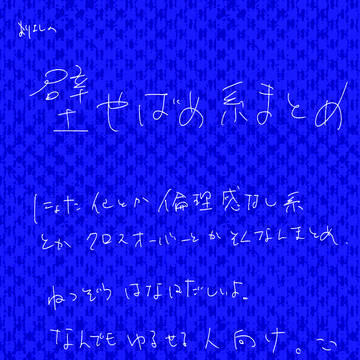 壁やばめ系まとめ
にょた化とか倫理感なし系
とかクロスオーバーとかそんなんまとめ.
ねつぞうはなはだしいよ。
なんでもゆるせる人向け。